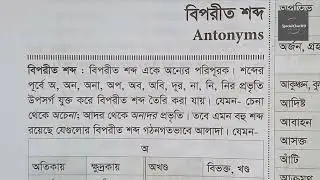 বিপরীত শব্দ
Antonyms
বিপরীত শব্দ : বিপরীত শব্দ একে অন্যের পরিপূরক। শব্দের
পূর্বে অ, অন, অনা, অপ, অব, অবি, দূর, না, নি, নির প্রভৃতি
উপসর্গ যুক্ত করে বিপরীত শব্দ তৈরি করা যায়। যেমন- চেনা
থেকে অচেনা; আদর থেকে অনাদর প্রভৃতি। তবে এমন বহু শব্দ
রয়েছে যেগুলোর বিপরীত শব্দ গঠনগতভাবে আলাদা। যেমন-
অ
অতিকায় ক্ষুদ্রকায় অখণ্ড বিভক্ত, খণ্ড
অর্জন,
আদিষ্ট
আবাহন
আসক্ত
আঁটি